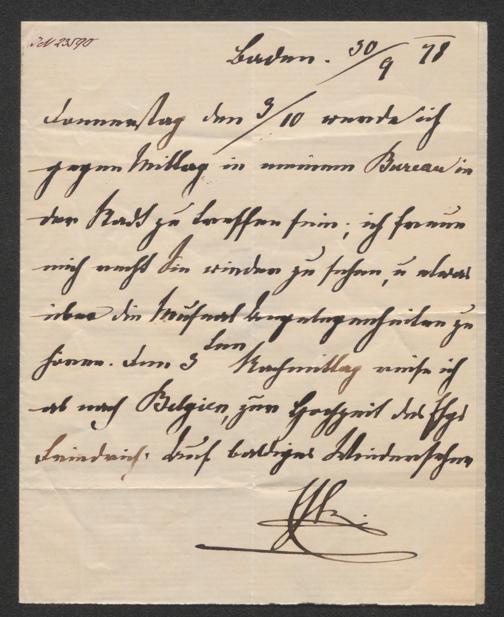 IN 23590
Baden. 30/9 78
Donnerstag den 3/10 werde ich
gegen Mittag in meinem Bureau in
der Stadt zu treffen sein; ich freue
mich recht Sie wieder zu sehen, u etwas
über die Museal Angelegenheiten zu
hören. Den 3ten Nachmittag reise ich
ab nach Belgien, zur Hochzeit des
Friedrich. Auf baldiges Wiedersehen